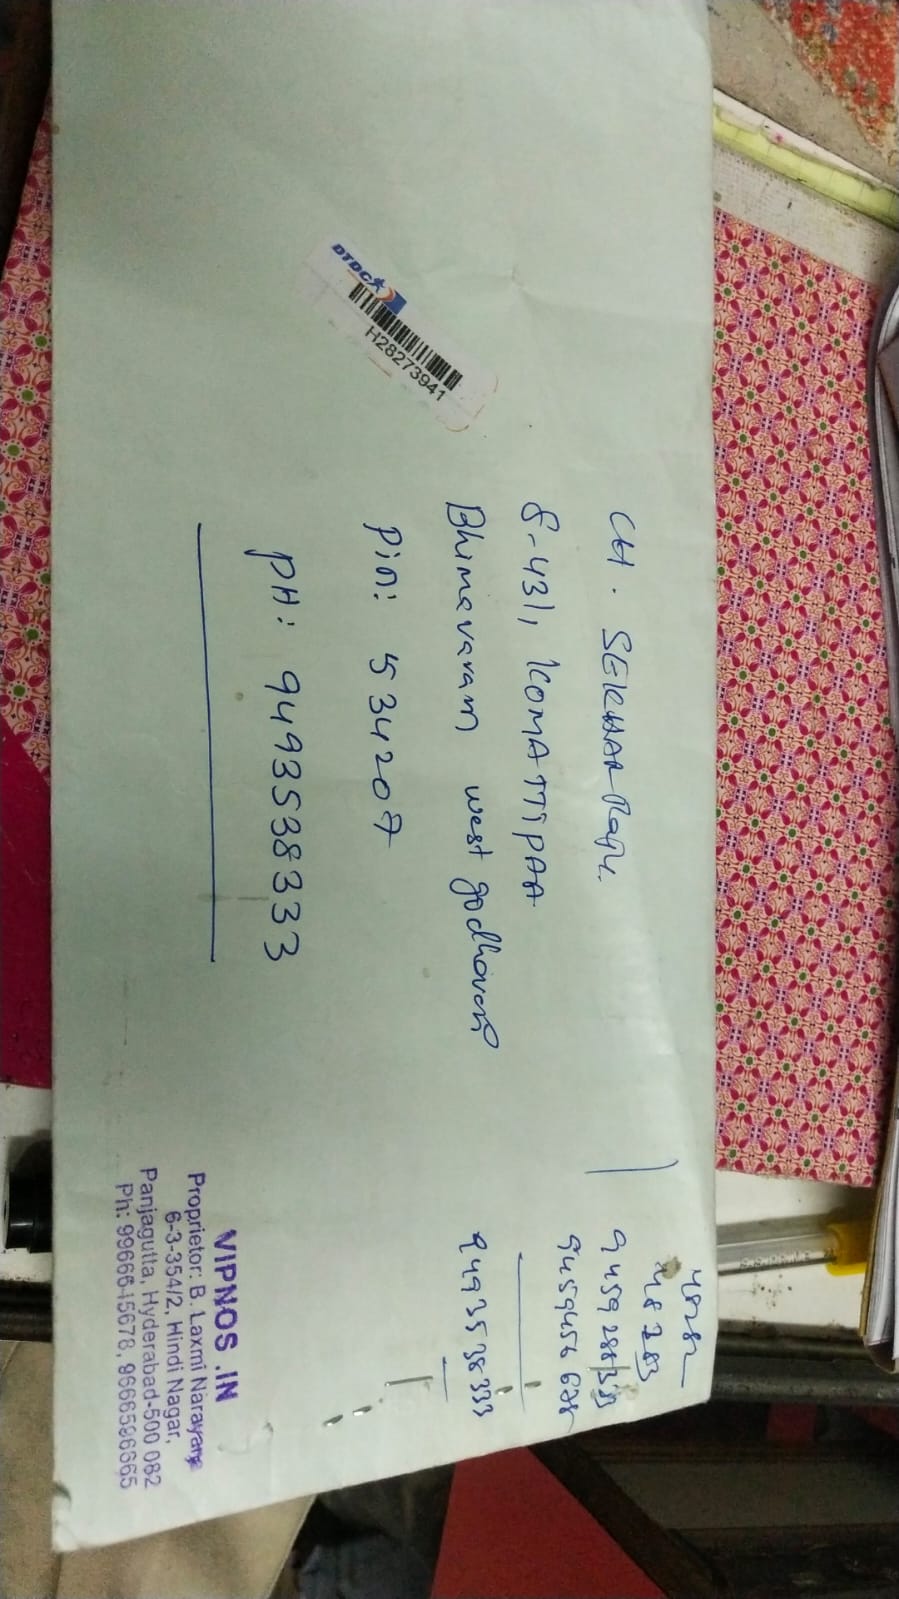 DTDC
H28273941
CH. SEKHAR Raju.
8-431, KOMATTIPAA
Bhimavaram west godhavari
Pin: 534207
PH: 9493538333
48282
48283
9459288383
9459456678
9493538333
VIPNOS .IN
Proprietor: B. Laxmi Narayana
6-3-354/2, Hindi Nagar,
Panjagutta, Hyderabad-500 082
Ph: 99666-15678, 9666586665